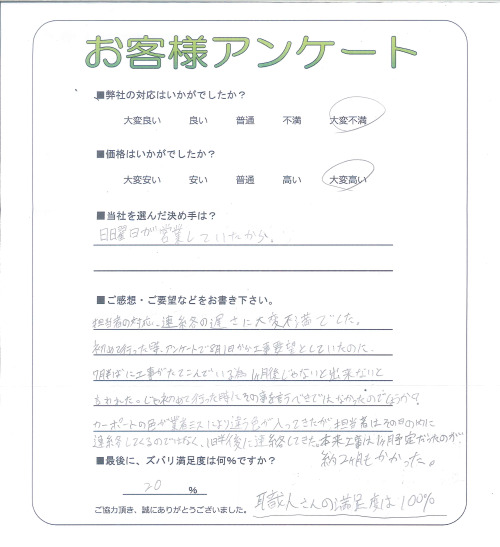 お客様アンケート
■弊社の対応はいかがでしたか?
大変良い 良い 普通 不満 大変不満
■価格はいかがでしたか?
大変安い 安い 普通 高い 大変高い
■当社を選んだ決め手は?
日曜日が営業していたから。
■ご感想・ご要望などをお書き下さい。
担当者の対応、連絡等の遅さに大変不満でした。
初めて行った時、アンケートで8月1日から工事希望としていたのに、
7月半ばに工事がたてこんでいる為1ヶ月後じゃないと出来ないと
言われた。じゃ初めて行った時にその事を言うべきではなかったのでしょうか?
カーポートの色が業者ミスにより違う色が入ってきたが担当者はその日の内に
連絡をしてくるのではなく、1日半後に連絡してきた。本来工事は1ヶ月予定だったのが
約2ヶ月もかかった。
■最後に、ズバリ満足度は何%ですか?
20 %
職人さんの満足度は100%
ご協力頂き、誠にありがとうございました。